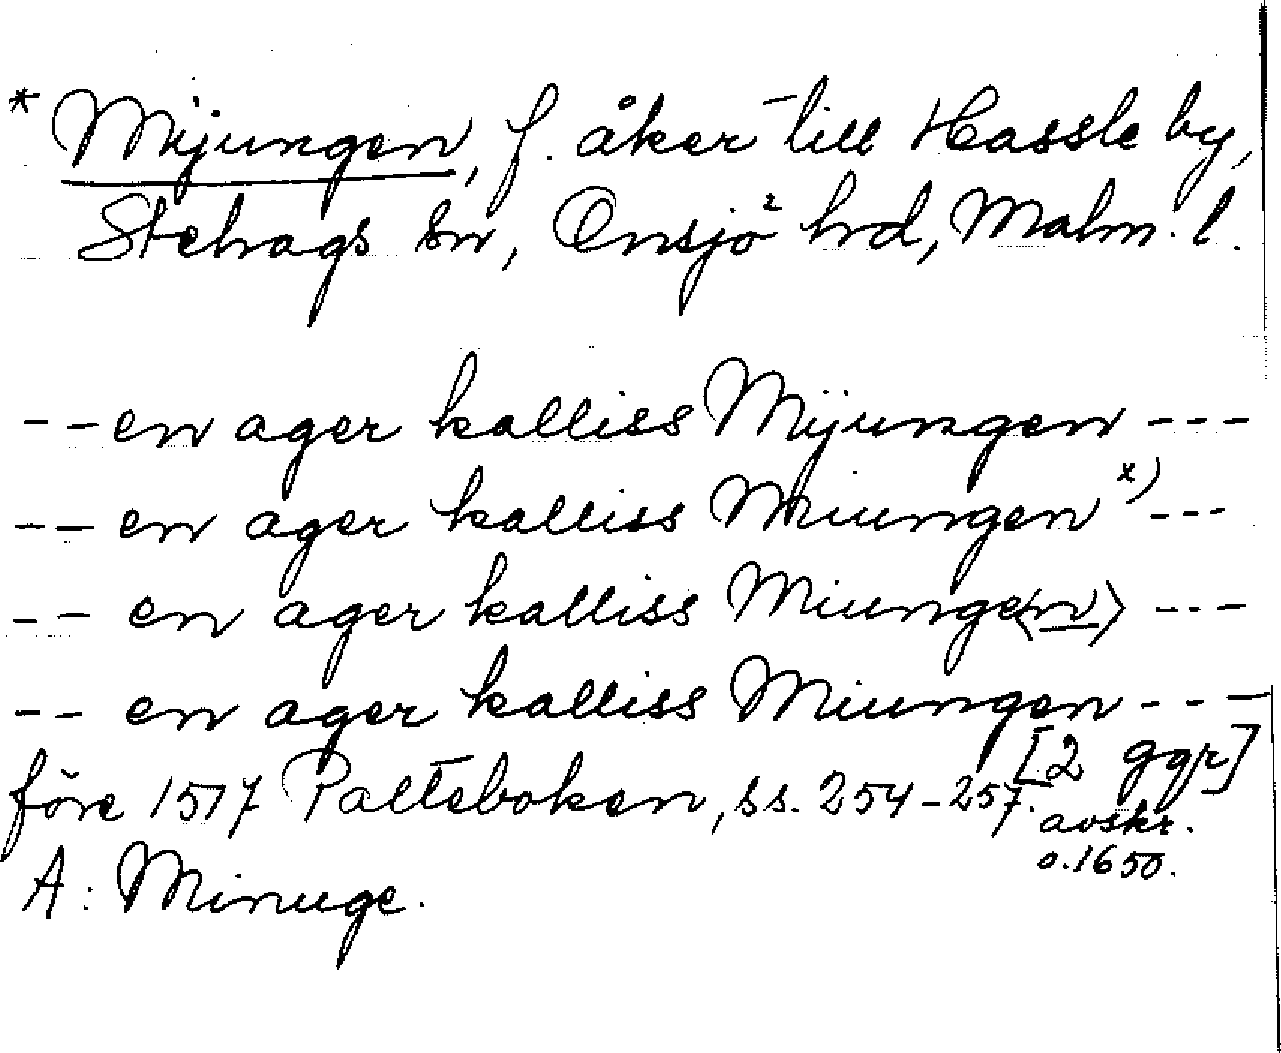 * Mijungen, f. åker till Hassle by,
Stehags sn, Onsjö hrd, Malm. l.
-- en ager kalliss Mijungen ---
-- en ager kalliss Miungen x) ---
-- en ager kalliss Miunge⟨n⟩ ---
-- en ager kalliss Miungen ---
[2 ggr]
före 1517 Palteboken, ss. 254-257.
avskr.
o. 1650.
A: Minuge.